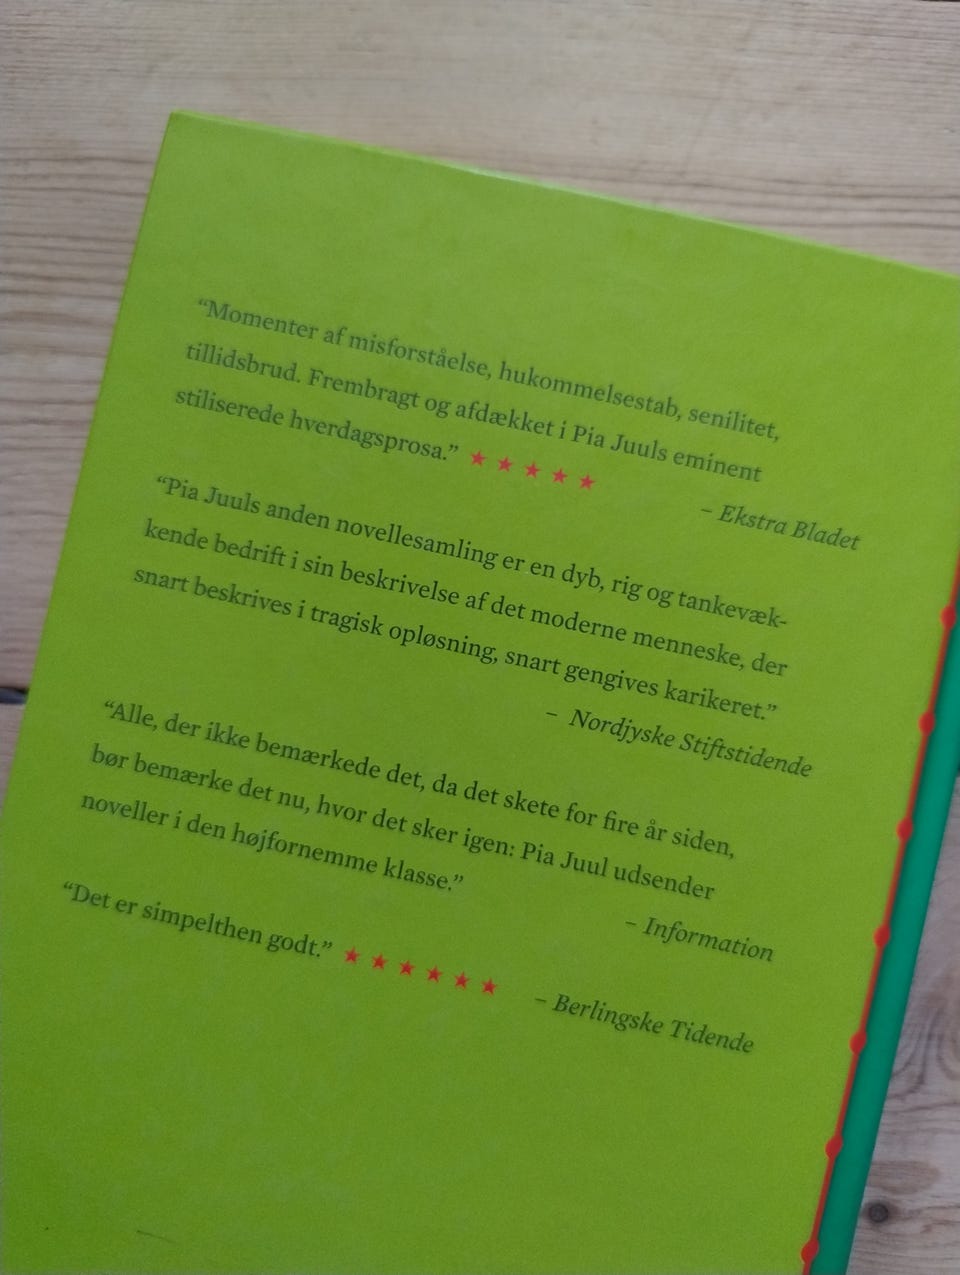 “Momenter af misforståelse, hukommelsestab, senilitet,
tillidsbrud. Frembragt og afdækket i Pia Juuls eminent
stiliserede hverdagsprosa.” ★ ★ ★ ★ ★
– Ekstra Bladet
“Pia Juuls anden novellesamling er en dyb, rig og tankevæk-
kende bedrift i sin beskrivelse af det moderne menneske, der
snart beskrives i tragisk opløsning, snart gengives karikeret.”
– Nordjyske Stiftstidende
“Alle, der ikke bemærkede det, da det skete for fire år siden,
bør bemærke det nu, hvor det sker igen: Pia Juul udsender
noveller i den højfornemme klasse.”
– Information
“Det er simpelthen godt.” ★ ★ ★ ★ ★ ★
– Berlingske Tidende